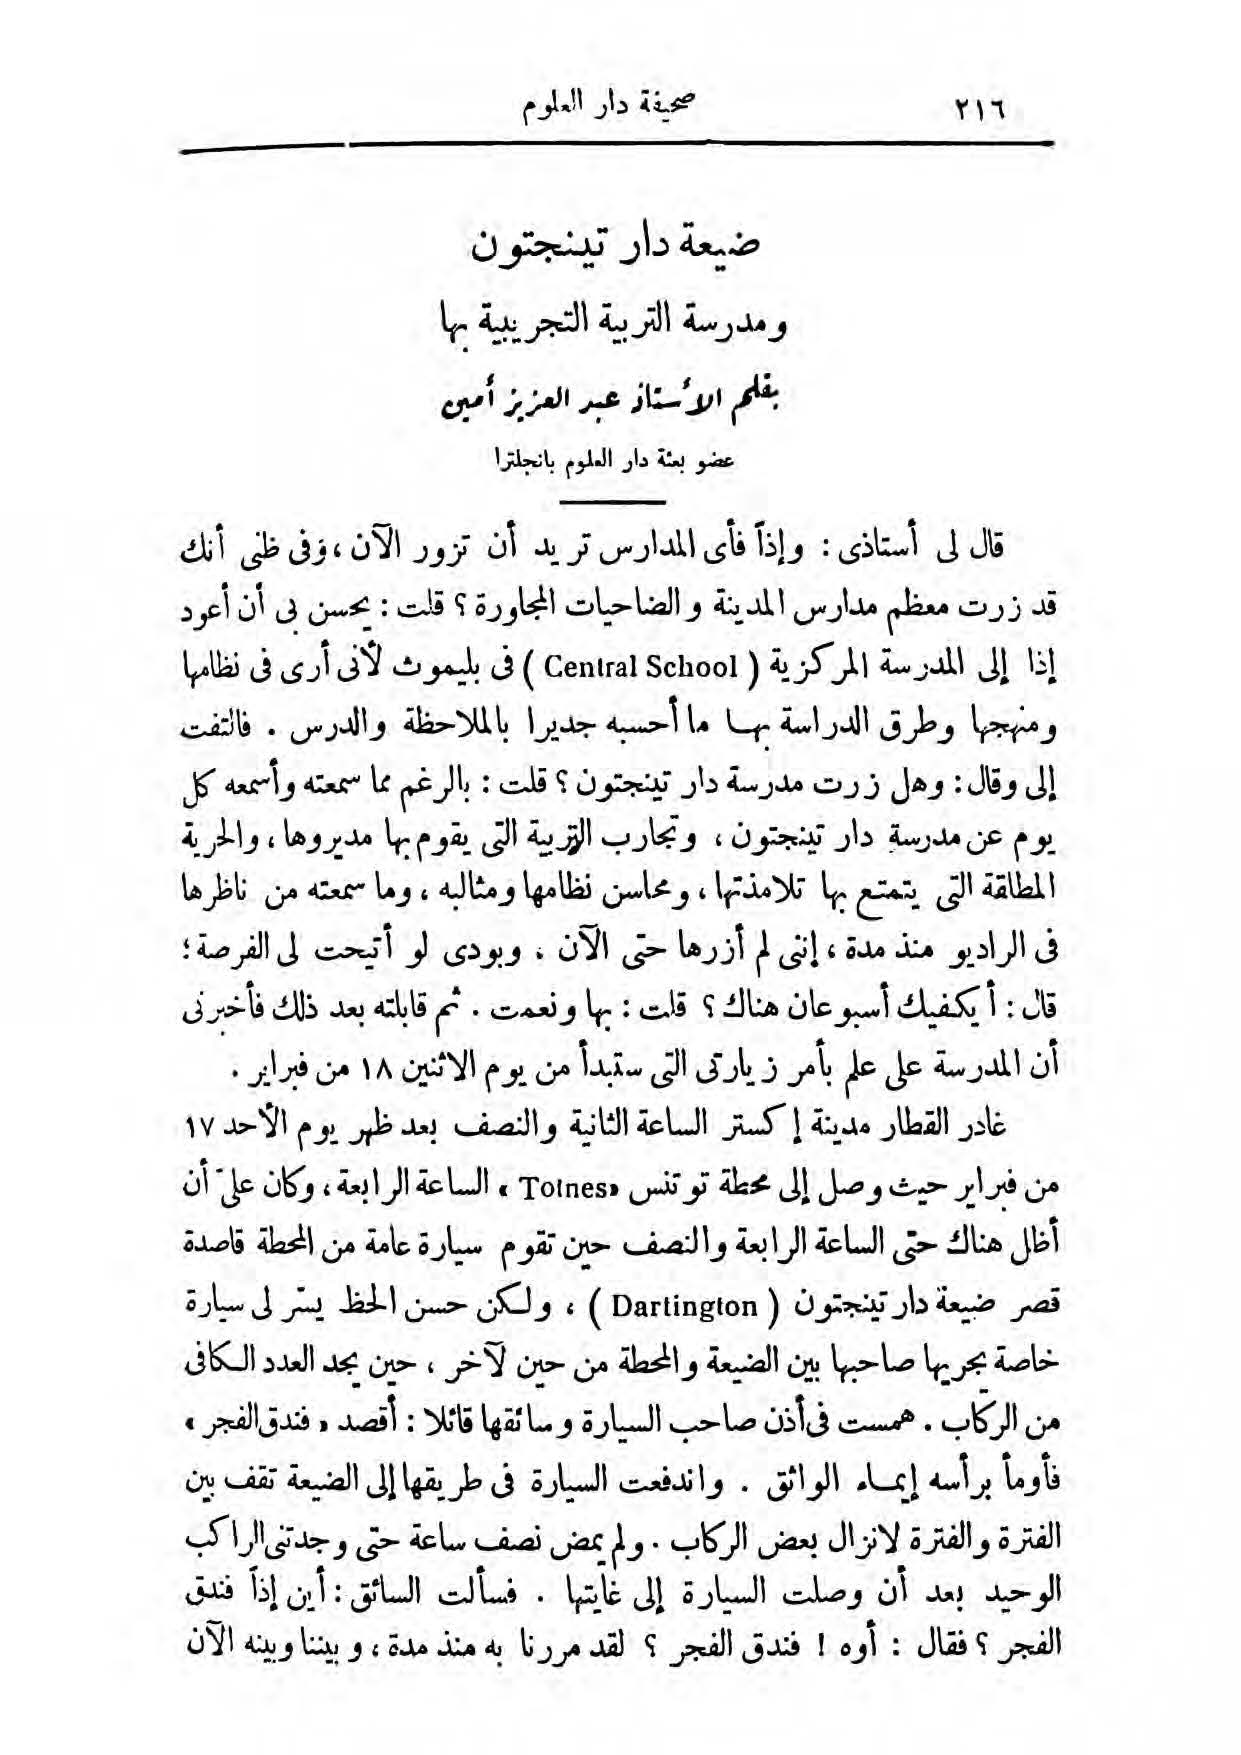 ٢١٦ صحيفة دار العلوم
ضيعة دار تينجتون
ومدرسة التربية التجريبية بها
بقلم الأستاذ عبد العزيز أمين
عضو بعثة دار العلوم بانجلترا
قال لى أستاذى : وإذاً فأى المدارس تريد أن تزور الآن ، وفى ظنى أنك
قد زرت معظم مدارس المدينة والضاحيات المجاورة ؟ قلت : يحسن بى أن أعود
إذا إلى المدرسة المركزية ( Central School ) فى بليموث لأنى أرى فى نظامها
ومنهجها وطرق الدراسة بها ما أحسبه جديرا بالملاحظة والدرس . فالتفت
إلى وقال : وهل زرت مدرسة دار تينجتون ؟ قلت : بالرغم مما سمعته وأسمعه كل
يوم عن مدرسة دار تينجتون ، وتجارب التربية التى يقوم بها مديروها ، والحرية
المطلقة التى يتمتع بها تلامذتها ، ومحاسن نظامها ومثالبه ، وما سمعته من ناظرها
فى الراديو منذ مدة ، إننى لم أزرها حتى الآن ، وبودى لو أتيحت لى الفرصة ؛
قال : أيكفيك أسبوعان هناك ؟ قلت : بها ونعمت . ثم قابلته بعد ذلك فأخبرنى
أن المدرسة على علم بأمر زيارتى التى ستبدأ من يوم الاثنين ١٨ من فبراير .
غادر القطار مدينة إكستر الساعة الثانية والنصف بعد ظهر يوم الأحد ١٧
من فبراير حيث وصل إلى محطة توتنس «Totnes» الساعة الرابعة ، وكان علىّ أن
أظل هناك حتى الساعة الرابعة والنصف حين تقوم سيارة عامة من المحطة قاصدة
قصر ضيعة دار تينجتون ( Dartington ) ، ولكن حسن الحظ يسّر لى سيارة
خاصة يجريها صاحبها بين الضيعة والمحطة من حين لآخر ، حين يجد العدد الكافى
من الركاب . همست فى أذن صاحب السيارة وسائقها قائلا : أقصد « فندق الفجر »
فأومأ برأسه إيماء الواثق . واندفعت السيارة فى طريقها إلى الضيعة تقف بين
الفترة والفترة لانزال بعض الركاب . ولم يمض نصف ساعة حتى وجدتنى الراكب
الوحيد بعد أن وصلت السيارة إلى غايتها . فسألت السائق : أين إذاً فندق
الفجر ؟ فقال : أوه ! فندق الفجر ؟ لقد مررنا به منذ مدة ، وبيننا وبينه الآن